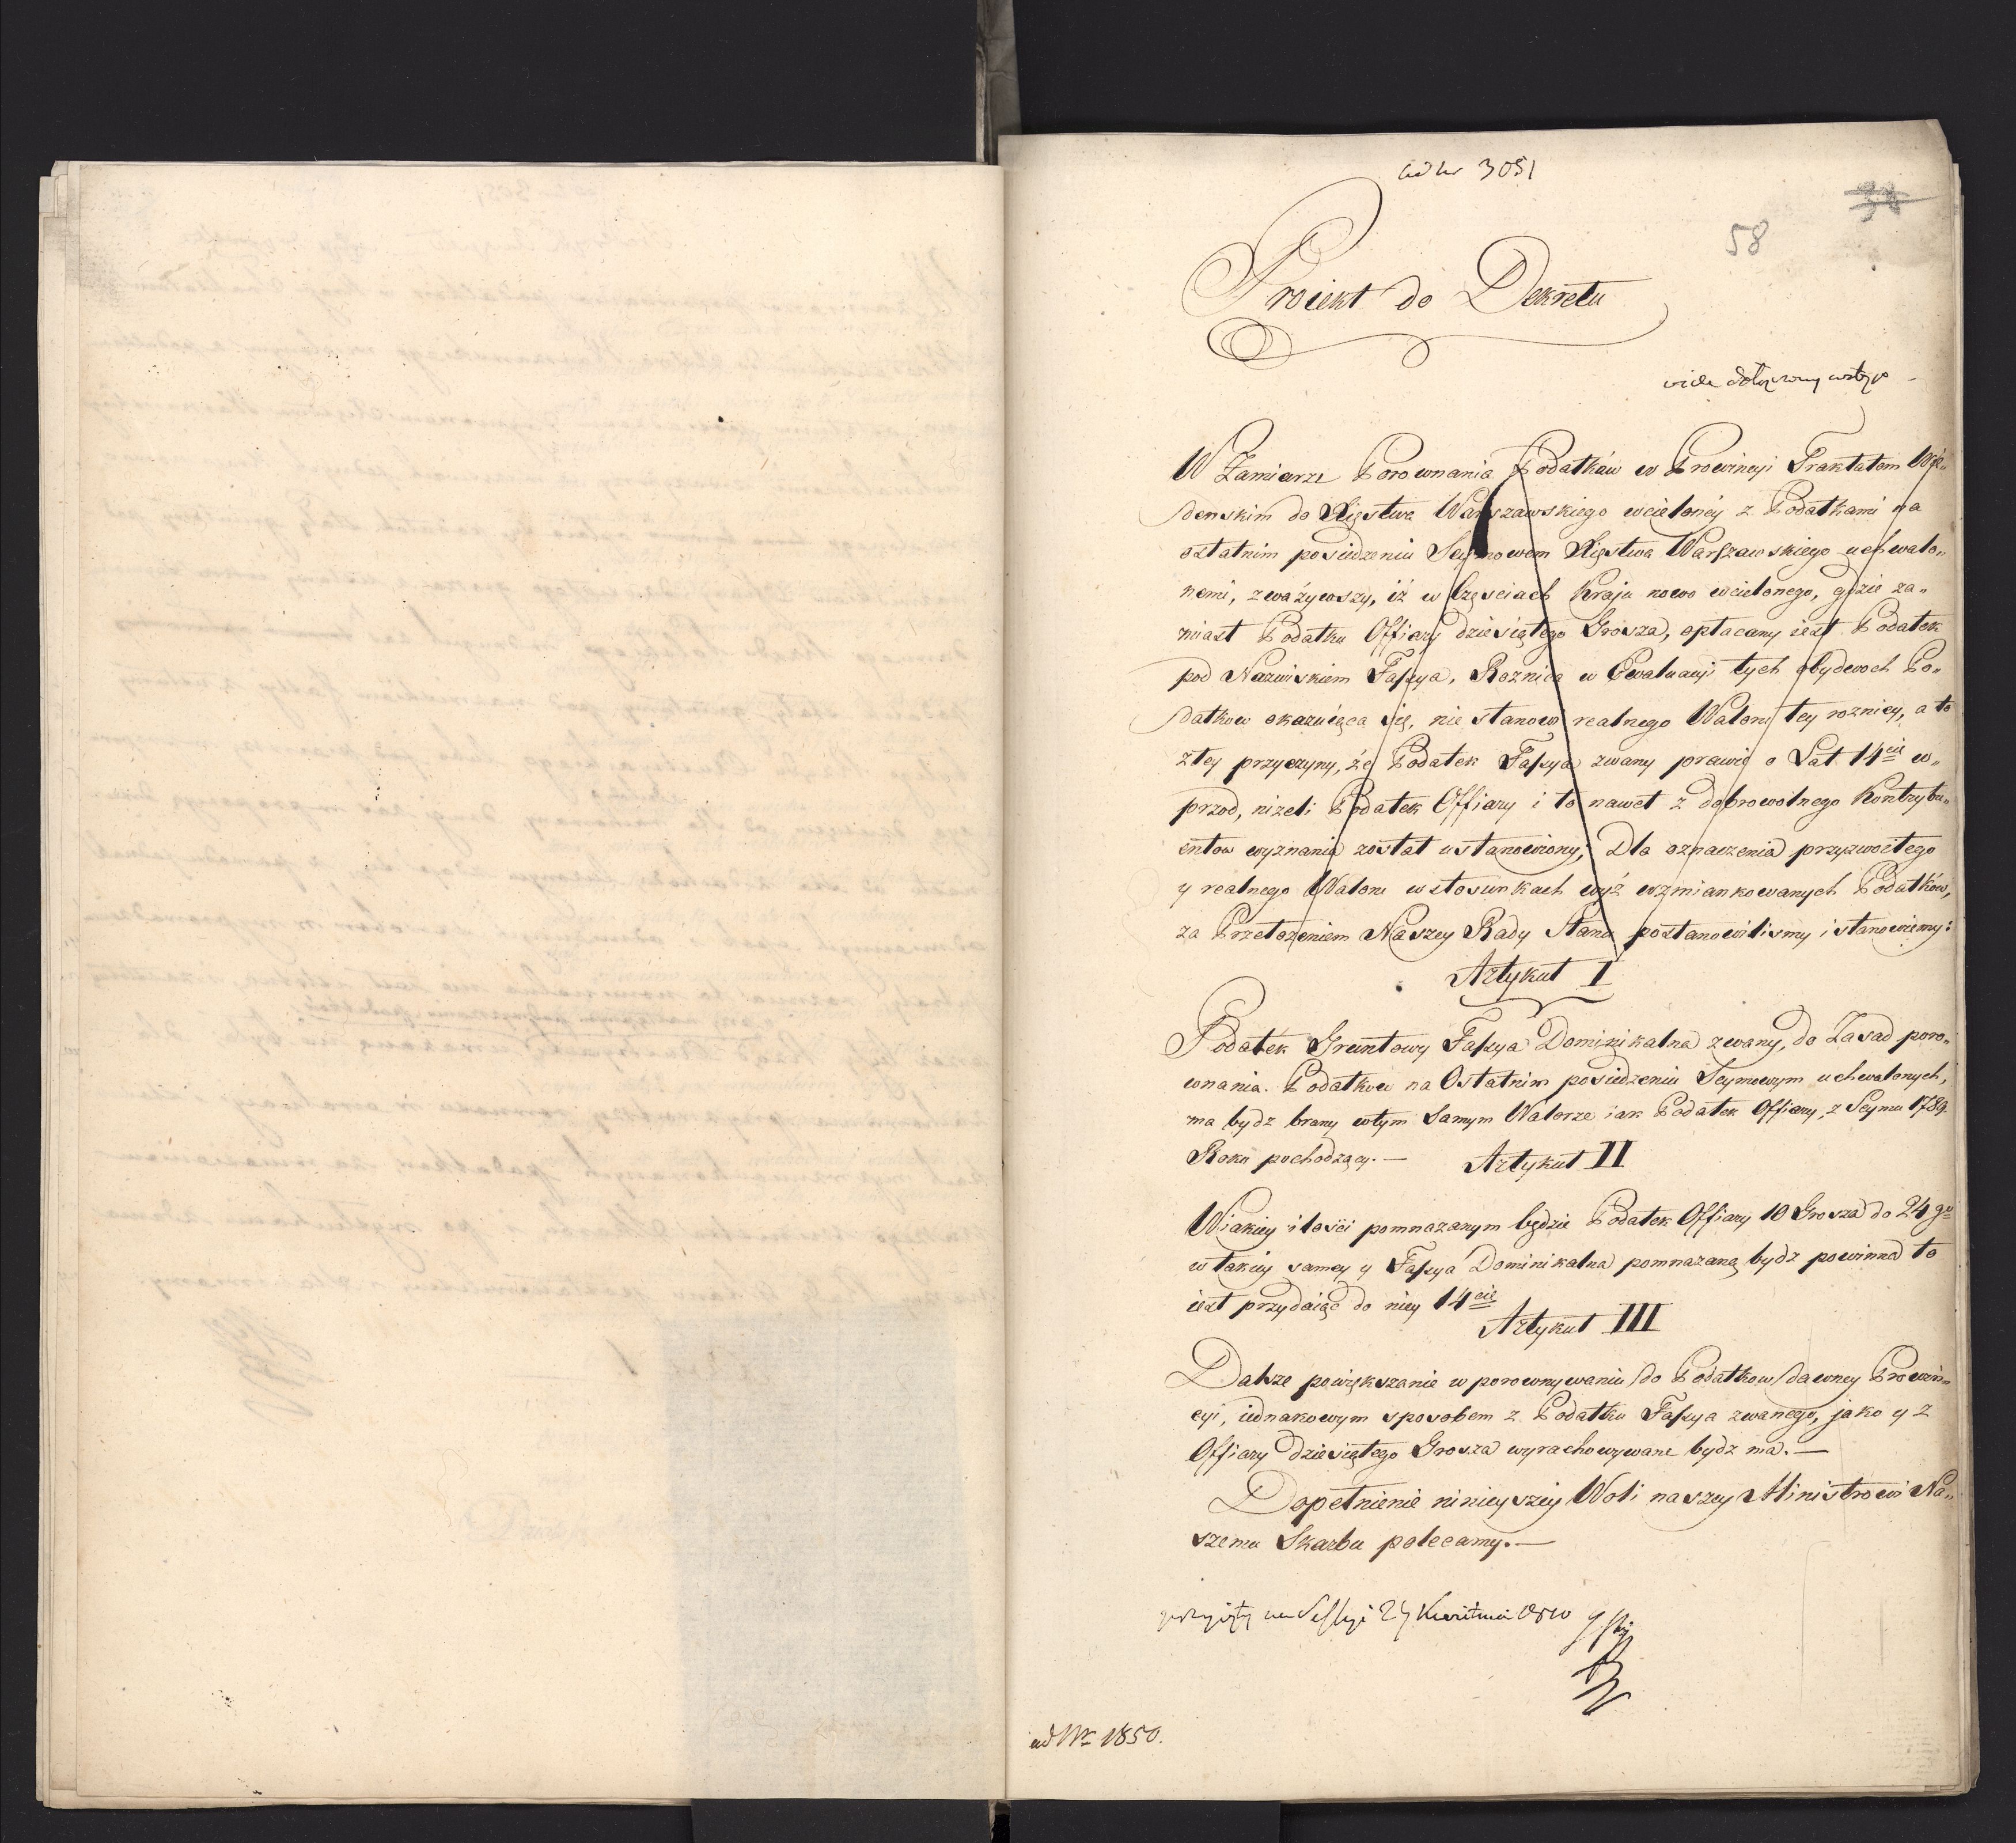 ad Nr 3051
38
58
Proiekt do Dekretu
vide dołączony wstęp
W Zamiarze Porownania Podatków w Prowincyi Traktatem Wie„
denskim do Xięstwa Warszawskiego wcieloney z Podatkami na
ostatnim posiedzeniu Seymowem Xięstwa Warszawskiego uchwalo„
nemi, zważywszy, iż w Częsciach Kraju nowo wcielonego, gdzie za„
miast Podatku Offiary dziesiątego Grosza, opłacany iest Podatek
pod Nazwiskiem Fassya, Roznica w Ewaluacyi tych obydwoch Po„
datkow okazuiąca się, nie stanowi realnego Waloru tey roznicy, a to
z tey przyczyny, że Podatek Fassya zwany prawie o Lat 14cie w„
przod, nizeli Podatek Offiary i to nawet z dobrowolnego Kontrybu„
entow wyznania został ustanowiony; Dla oznaczenia przyzwoitego
y realnego Waloru w stosunkach wyż wzmiankowanych Podatków,
za Przełożeniem Naszey Rady Stanu postanowilismy i stanowiemy:
Artykuł I
Podatek Gruntowy Fassya Dominikalna zwany, do Zasad poro„
wnania Podatkow na Ostatnim posiedzeniu Seymowym uchwalonych,
ma bydz brany w tym samym Walorze iak Podatek Offiary, z Seymu 1789.
Roku pochodzący. —
Artykuł II
W iakiey ilosci pomnazanym będzie Podatek Offiary 10 Grosza do 24go
w takiey samey y Fassya Dominikalna pomnazaną bydz powinna to
iest przydaiąc do niey 14cie
Artykuł III
Dalsze powiększanie w porownywaniu do Podatkow dawney Prowin„
cyi, iednakowym sposobem z Podatku Fassya zwanego, jako y z
Offiary dziesiątego Grosza wyrachowywane bydz ma. —
Dopełnienie ninieyszey Woli naszey Ministrowi Na„
szemu Skarbu polecamy. —
przyięty na Sessyi 24 Kwietnia 1810
ad Nr 1850.